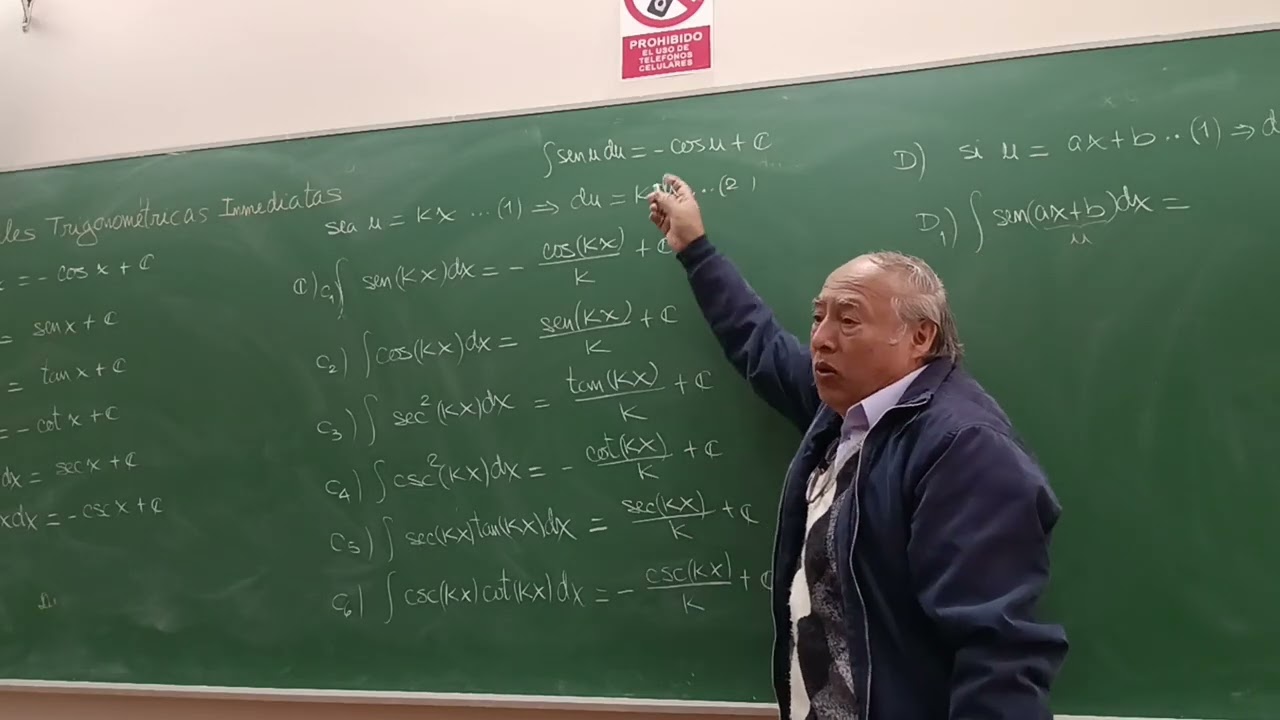 PROHIBIDO
EL USO DE
TELEFONOS
CELULARES
les Trigonométricas Inmediatas
= - cos x + ℂ
= sen x + ℂ
= tan x + ℂ
= - cot x + ℂ
dx = sec x + ℂ
x dx = - csc x + ℂ
∫ sen u du = - cos u + ℂ
sea u = Kx ... (1) ⇒ du = K ... (2)
ℂ) C₁) ∫ sen(Kx)dx = - cos(Kx)/K + ℂ
C₂) ∫ cos(Kx)dx = sen(Kx)/K + ℂ
C₃) ∫ sec²(Kx)dx = tan(Kx)/K + ℂ
C₄) ∫ csc²(Kx)dx = - cot(Kx)/K + ℂ
C₅) ∫ sec(Kx)tan(Kx)dx = sec(Kx)/K + ℂ
C₆) ∫ csc(Kx)cot(Kx)dx = - csc(Kx)/K + ℂ
D) si u = ax+b .. (1) ⇒ d
D₁) ∫ sen(ax+b)dx =
u